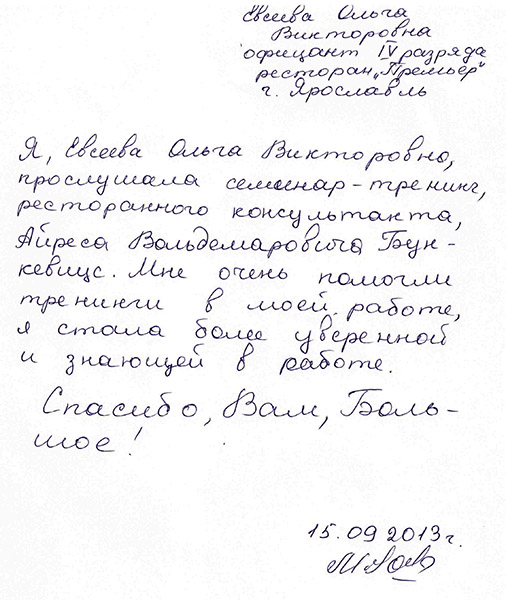 Евсеева Ольга
Викторовна
официант IV разряда
ресторан „Премьер"
г. Ярославль
Я, Евсеева Ольга Викторовна,
прослушала семенар-тренинг,
ресторанного консультанта,
Айреса Вольдемаровича Бун-
кевицс. Мне очень помогли
тренинги в моей работе,
я стала более уверенной
и знающей в работе.
Спасибо, Вам, Боль-
шое!
15.09 2013г.